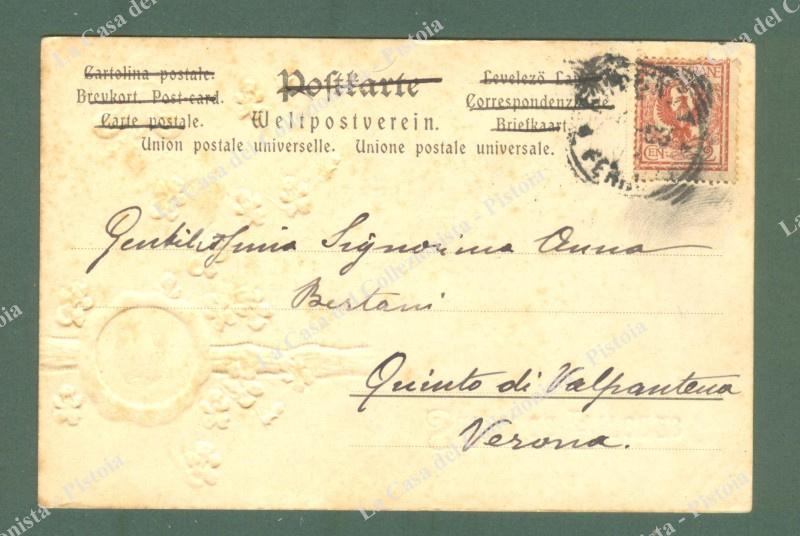 Cartolina postale.
Brevkort. Post-card.
Carte postale.
Postkarte
Weltpostverein.
Levelező La
Correspondenz
Briefkaart
Union postale universelle. Unione postale universale.
Gentilissima Signorina Anna
Bertani
Quinto di Valpantena
Verona.
La Casa del Collezionista - Pistoia